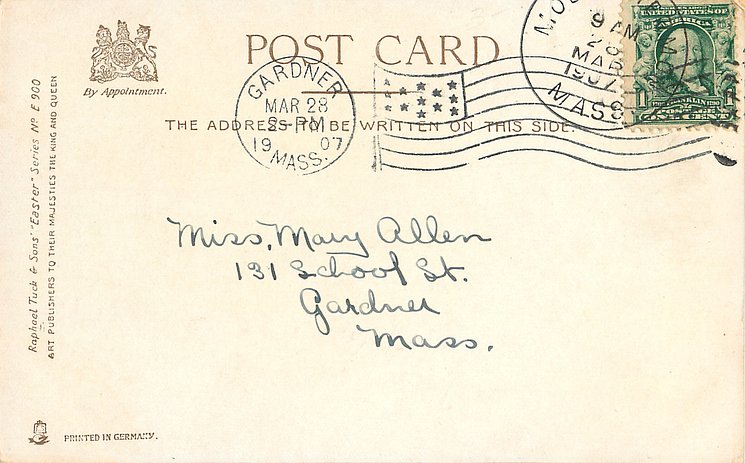 By Appointment.
POST CARD
THE ADDRESS TO BE WRITTEN ON THIS SIDE.
GARDNER
MAR 28
2-PM
19 07
MASS.
9 AM
28
MAR
1907
MASS
UNITED STATES OF
AMERICA
FRANKLIN
1
Miss, Mary Allen
131 School St.
Gardner
Mass.
Raphael Tuck & Sons' "Easter" Series Nº E 900
ART PUBLISHERS TO THEIR MAJESTIES THE KING AND QUEEN
PRINTED IN GERMANY.